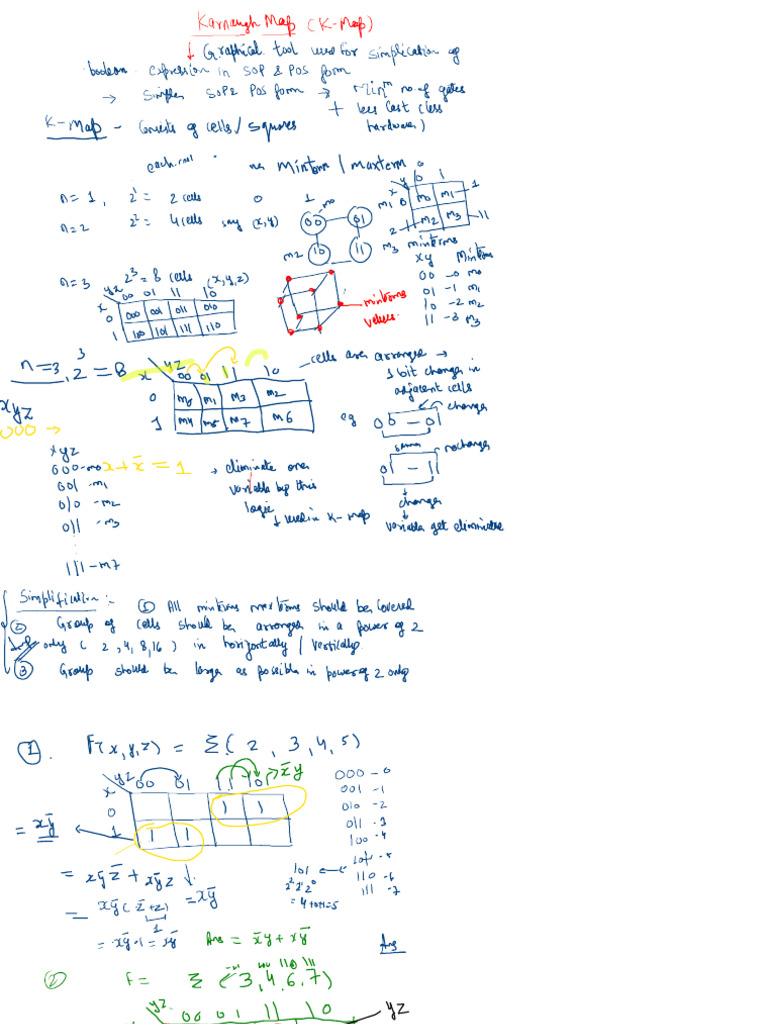 Karnaugh Map (K-Map)
↓ Graphical tool used for simplication of
boolean expression in SOP & POS form
→ Simpler SOP& POS form → Minm no. of gates
+ less cost (less
hardware)
K-Map - Consists of cells/squares
each cell Minterm / maxterm
n = 1, 2¹ = 2 cells 0 1
n = 2 2² = 4 cells say (x,y)
m0
00 01
m2 10 11 m3
y 0 1
x
m1 0 m0 m1 1
2 m2 m3 11
minterms
xy Minterms
00 -0 m0
01 -1 m1
10 -2 m2
11 -3 m3
n=3 2³ = 8 cells (x,y,z)
yz 00 01 11 10
x
0 000 001 011 010
1 100 101 111 110
minterms
values
n=3, 2³ = 8
x yz 00 01 11 10
0 m0 m1 m3 m2
1 m4 m5 m7 m6
cells are arranged →
1 bit changes in
adjacent cells
changes
eg 00 - 01
same nochanges
01 - 11
changes
variable get eliminate
xyz
000 →
xyz
000-m0
001 -m1
010 -m2
011 -m3
111 -m7
x + x̄ = 1 → eliminate one
variable by this
logic
↓ used in K-map
Simplification :- ① All minterms maxterms should be covered
② Group of cells should be arranged in a power of 2
only (2,4,8,16) in horizontally / vertically
③ Group should be large as possible in power of 2 only
① . F(x,y,z) = Σ(2, 3, 4, 5)
yz 00 01 11 10 → x̄y
x
0 1 1
1 1 1
= xȳ
000 - 0
001 -1
010 -2
011 -3
100 -4
101 -5
110 -6
111 -7
101
2² 2¹ 2⁰
= 4+0+1=5
= xȳz̄ + xȳz
= xȳ(z̄+z) = xȳ
1
= xȳ·1 = xȳ Ans = x̄y + xȳ
Ans
② F = Σ (3,4,6,7)
110 111
yz 00 01 11 10 yz